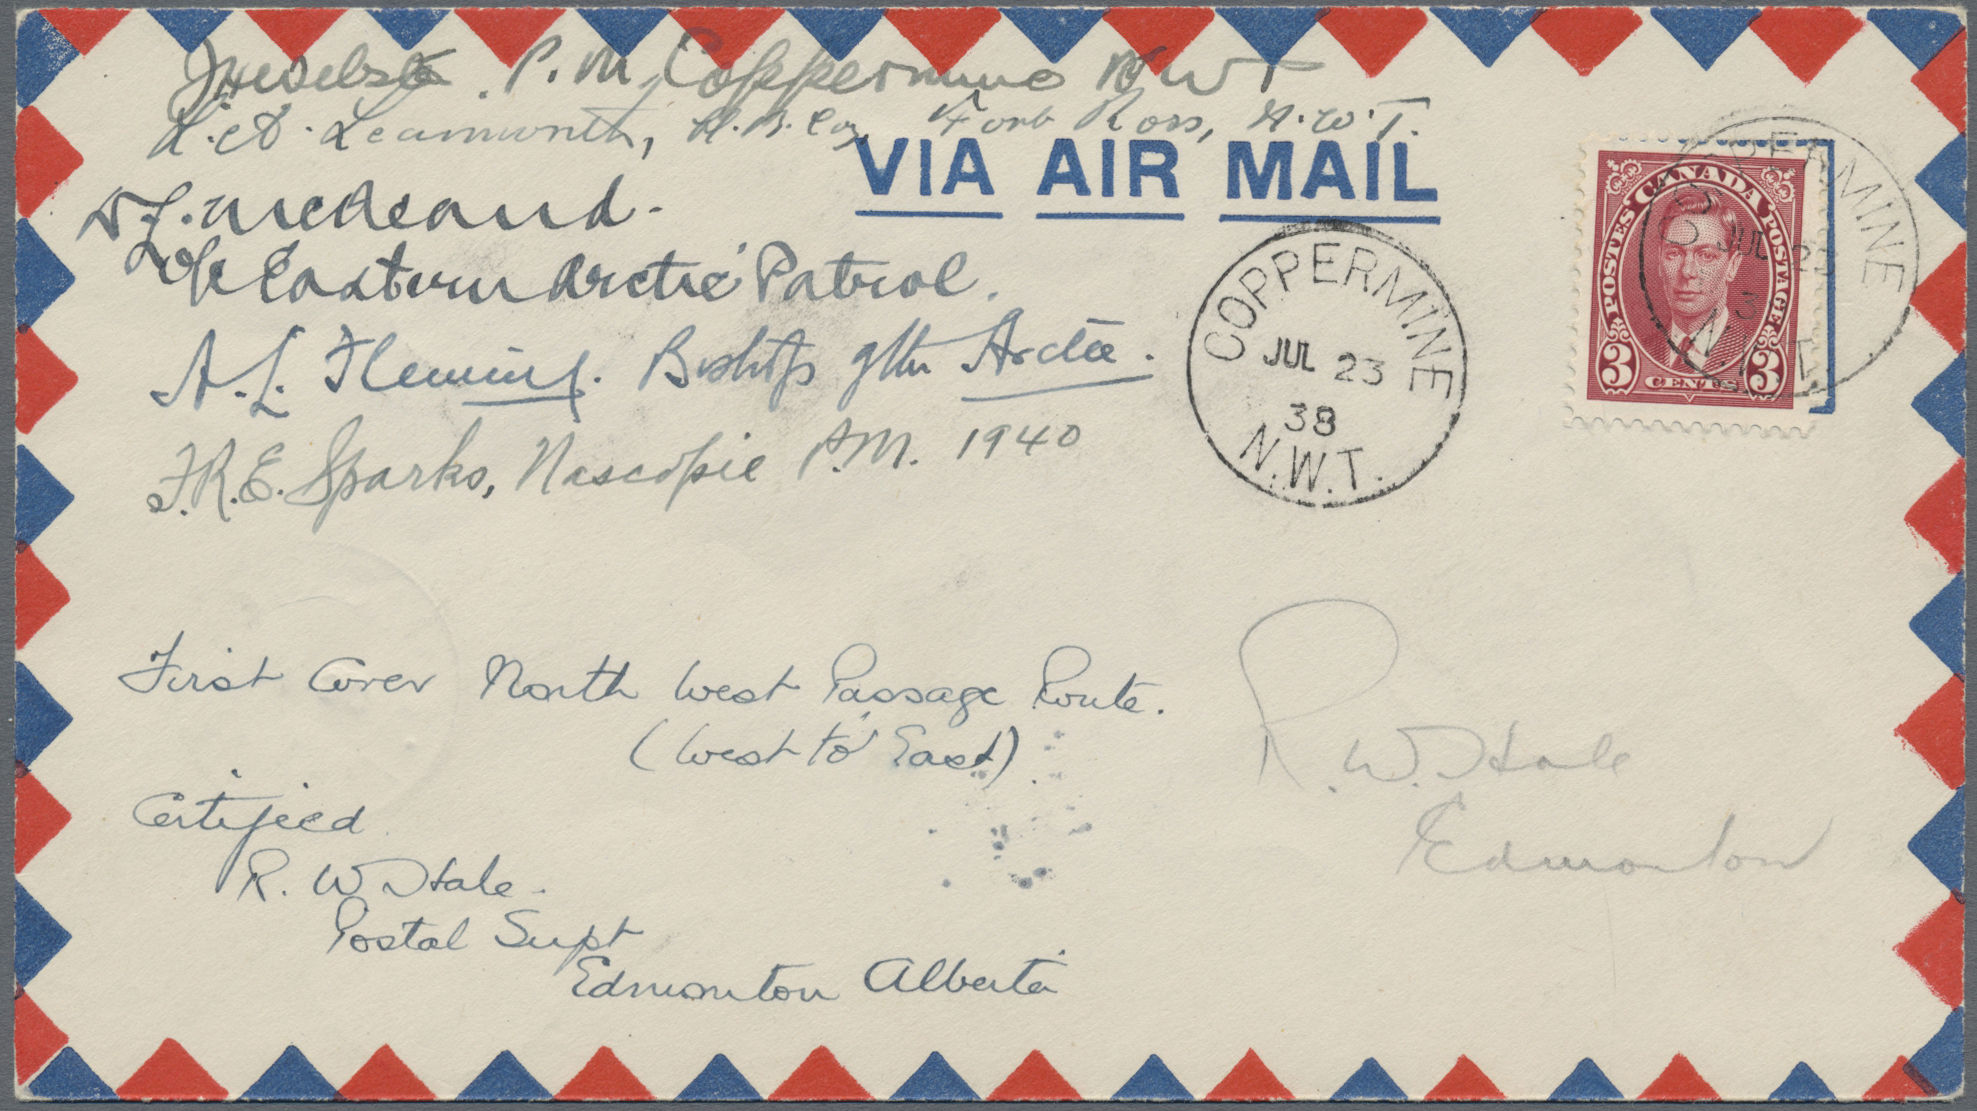 P.M. Coppermine NWT
L.A. Learmonth, H.B. Coy Fort Ross, N.W.T.
VIA AIR MAIL
D.L. McKeand.
Eastern Arctic Patrol.
A.L. Fleming. Bishop of the Arctic.
F.R.E. Sparks, Nascopie P.M. 1940
COPPERMINE
JUL 23
38
N.W.T.
COPPERMINE
JUL 23
3
N.W.T.
CANADA
POSTES POSTAGE
3 CENTS 3
First Cover North West Passage Route.
(West to East)
Certified
R. W. Hale.
Postal Supt
Edmonton Alberta
R. W. Hale
Edmonton